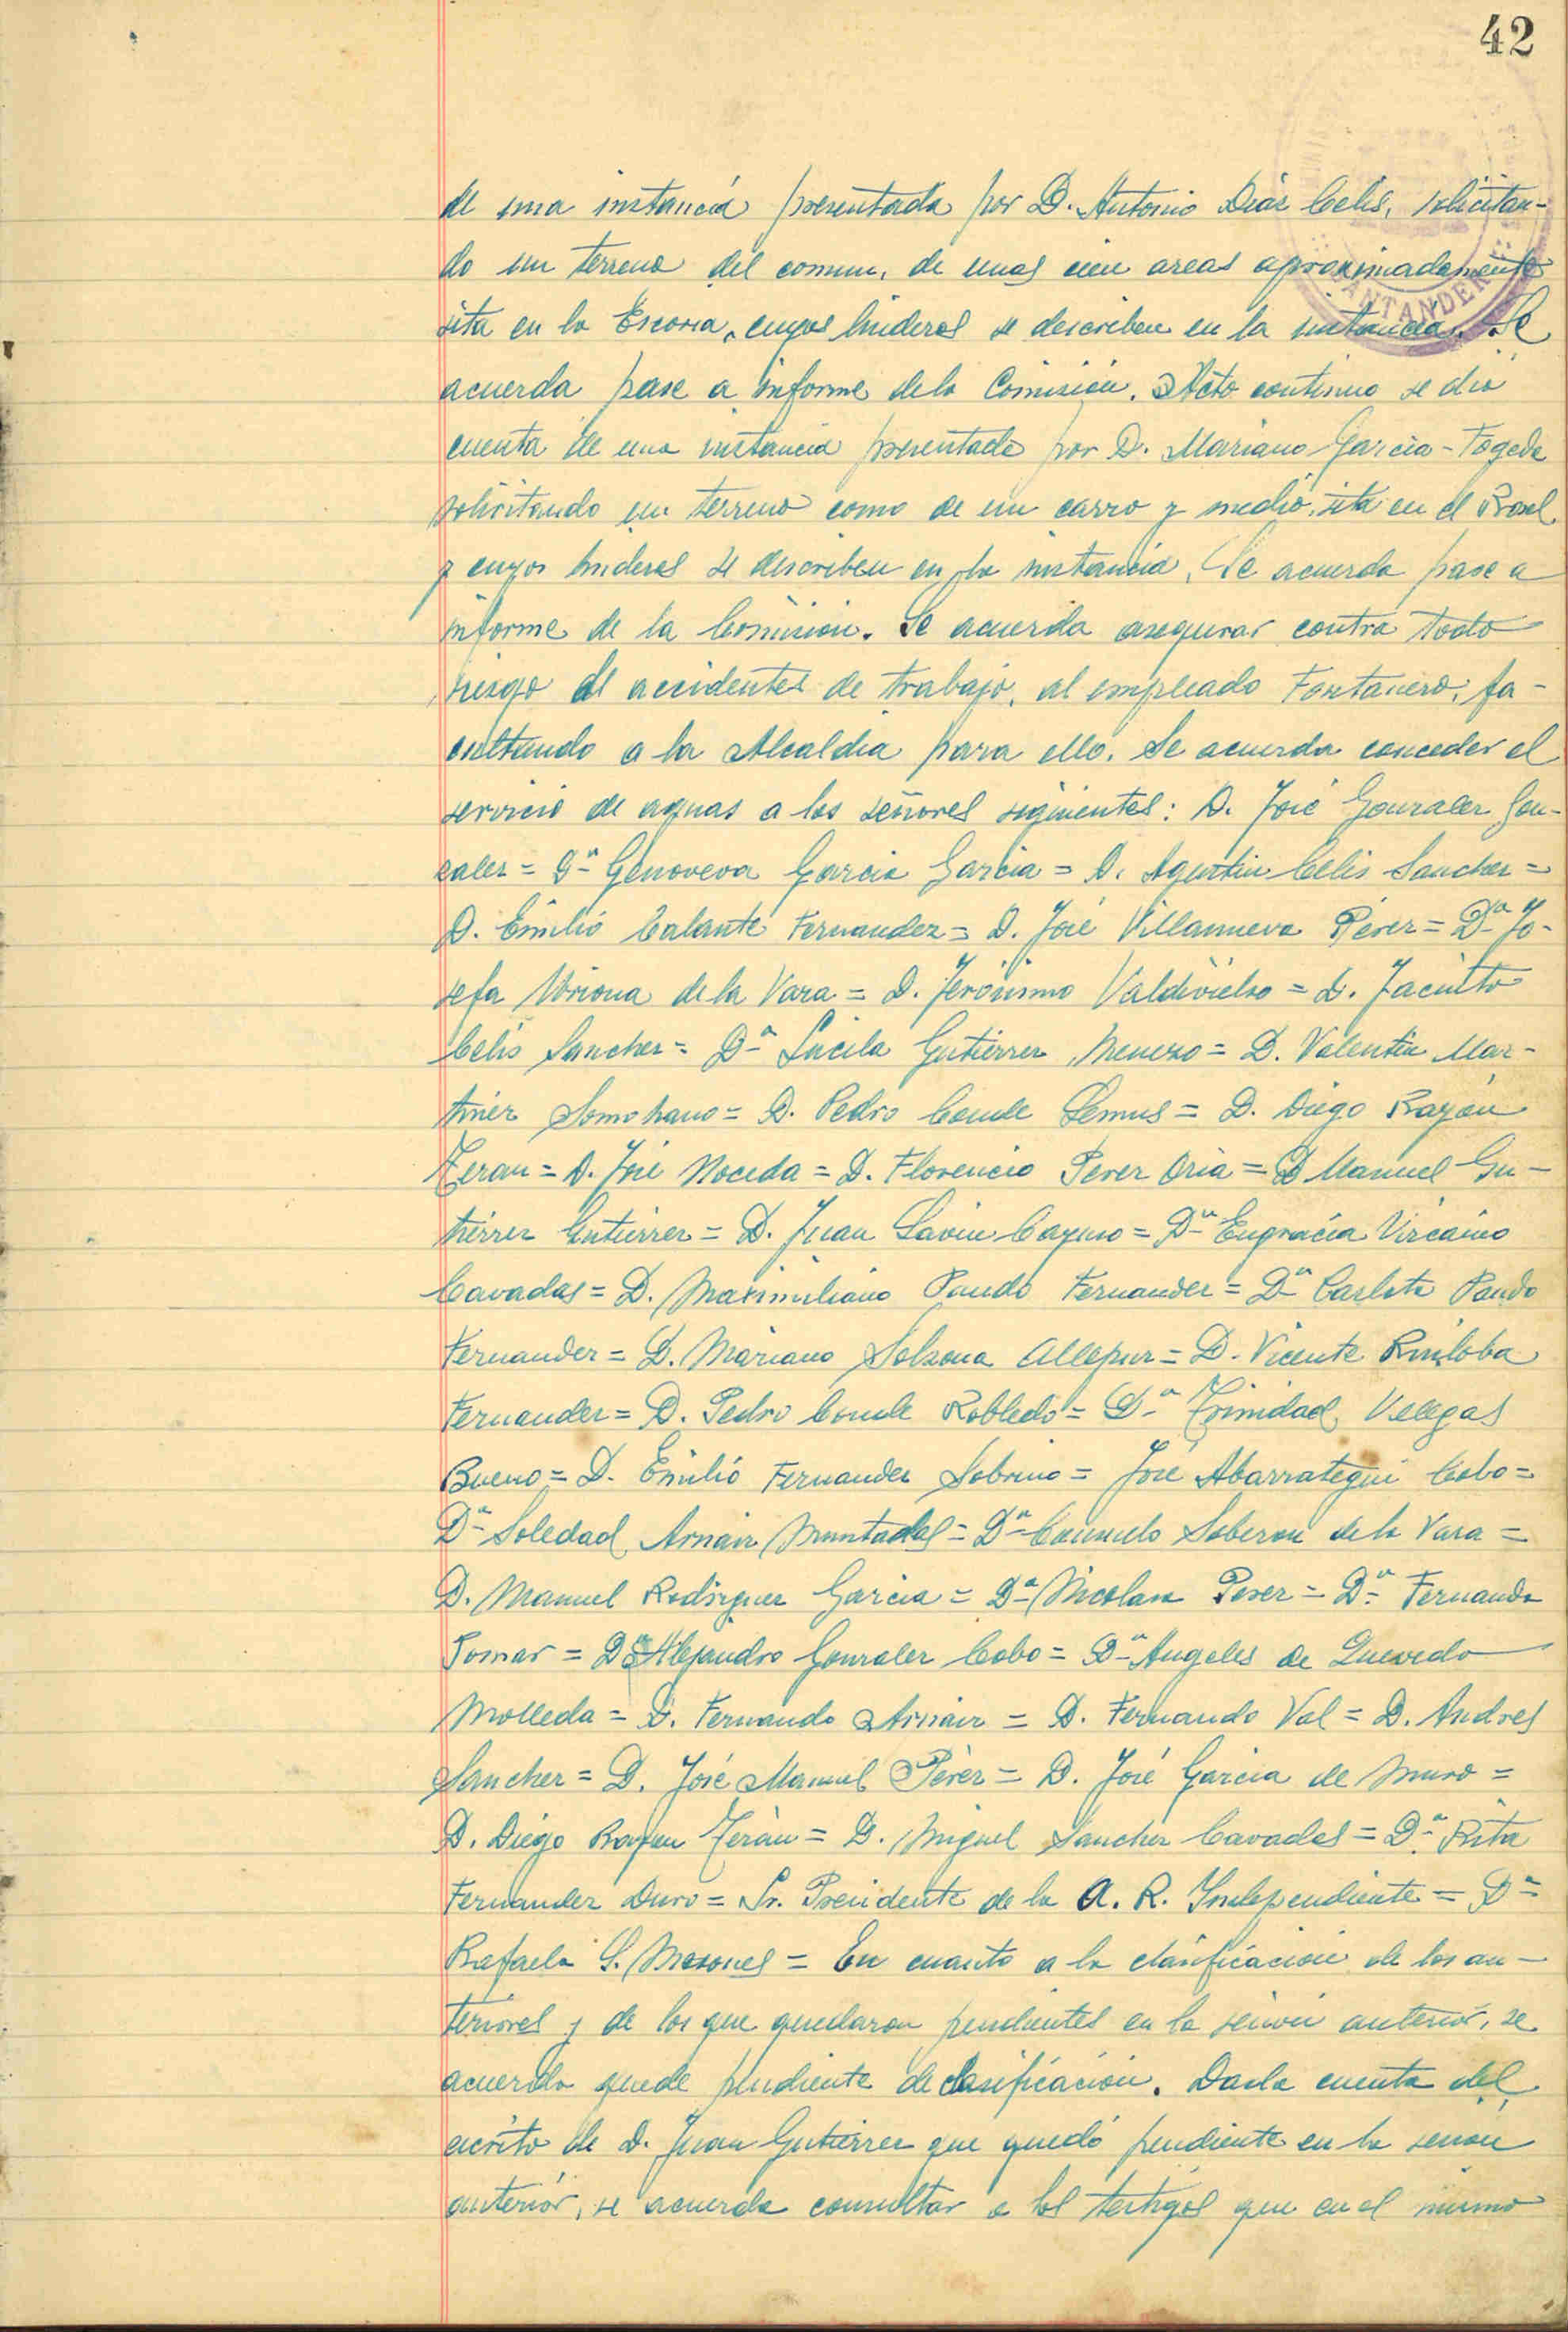 42
de una instancia presentada por D. Antonio Diaz Celis, solicitan-
do un terreno del comun, de unas cien areas aproximadamente
sita en la Escoria, cuyos linderos se describen en la instancia. Se
acuerda pase a informe de la Comisión. Acto continuo se dió
cuenta de una instancia presentada por D. Mariano Garcia-
solicitando un terreno como de un carro y medio, sita en el
y cuyos linderos se describen en la instancia, Se acuerda pase a
informe de la Comision. Se acuerda asegurar contra todo
riesgo de accidentes de trabajo, al empleado Fontanero, fa-
cultando a la Alcaldia para ello. Se acuerda conceder el
servicio de aguas a los señores siguientes: D. José Gonzalez Gon-
zalez = Dª Genoveva Garcia Garcia = D. Agustin Celis Sanchez =
D. Emilio Calante Fernandez = D. José Villanueva Pérez = Dª Jo-
sefa de la Vara = D. Jerónimo Valdivielso = D. Jacinto
Celis Sanchez = Dª Lucila Gutierrez = D. Valentin Mar-
tinez Somohano = D. Pedro Conde Lemus = D. Diego Rayón
Teran = D. José Noceda = D. Florencio Perez Oria = D Manuel Gu-
tierrez Gutierrez = D. Juan Lavin Cayuso = Dª Engracia Vizcaino
Cavadas = D. Maximiliano Pando Fernandez = Dª Carlota Pando
Fernandez = D. Mariano Solsona Allepuz = D. Vicente Ruiloba
Fernandez = D. Pedro Conde Robledo = Dª Trinidad Villegas
Bueno = D. Emilio Fernandez Sobrino = José Abarrategui Cobo =
Dª Soledad Arnaiz Muntadas = Dª Consuelo Soberon de la Vara =
D. Manuel Rodriguez Garcia = Dª Nicolasa Perez = Dª Fernanda
Pomar = D Alejandro Gonzalez Cobo = Dª Angeles de Quevedo
Molleda = D. Fernando Arnaiz = D. Fernando Val = D. Andres
Sanchez = D. José Manuel Pérez = D. José Garcia de Muro =
D. Diego Rayon Terán = D. Miguel Sanchez Cavadas = Dª Rita
Fernandez Duro = Sr. Presidente de la A. R. Independiente = Dª
Rafaela G. Mesones = En cuanto a la clasificación de los an-
teriores y de los que quedaron pendientes en la sesión anterior, se
acuerda quede pendiente de clasificación. Dada cuenta del
escrito de D. Juan Gutierrez que quedó pendiente en la sesión
anterior, se acuerda consultar a los testigos que en el mismo
SANTANDER